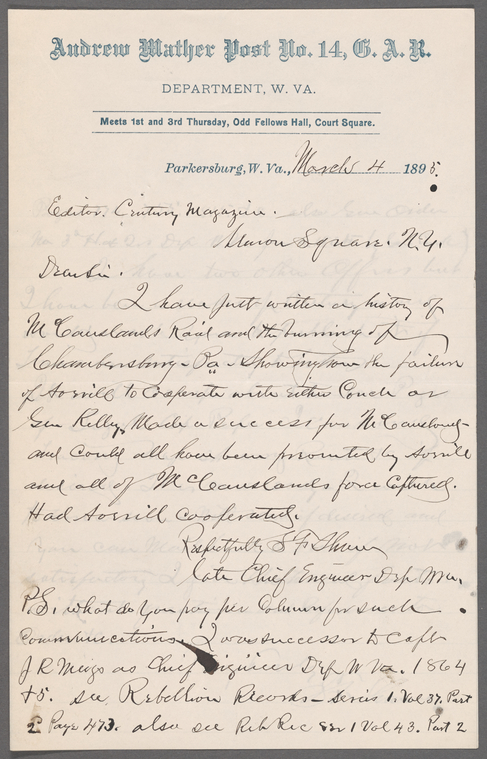 Andrew Mather Post No. 14, G. A. R.
DEPARTMENT, W. VA.
Meets 1st and 3rd Thursday, Odd Fellows Hall, Court Square.
Parkersburg, W. Va., March 4 1895.
Editor. Century Magazine.
Union Square. N.Y.
Dear Sir.
I have just written a history of
McCauslands Raid and the burning of
Chambersburg - Pa - Showing how the failure
of Averill to Cooperate with either Couch or
Gen Kelley, Made a success for McCausland -
and could all have been prevented by Averill
and all of McCauslands force Captured.
Had Averill cooperated.
Respectfully S F
Late Chief Engineer Dep W Va.
P.S. what do you pay per Column for such
Communications. I was successor to Capt
J R Meigs as Chief Engineer Dep W Va. 1864
+5. see, Rebellion Records - series 1. Vol 37. Part
2 Page 473. also see Reb Rec Ser 1 Vol 43. Part 2